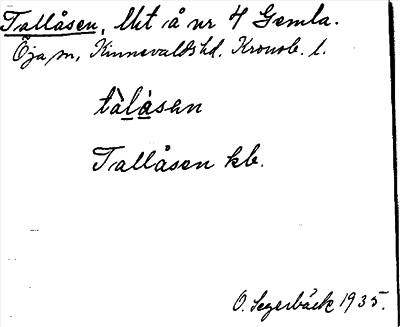 Tallåsen, lht å nr 4 Gemla.
Öja sn, Kinnevalds hd. Kronob. l.
tàlåsen
Tallåsen kb.
O. Segerbäck 1935.